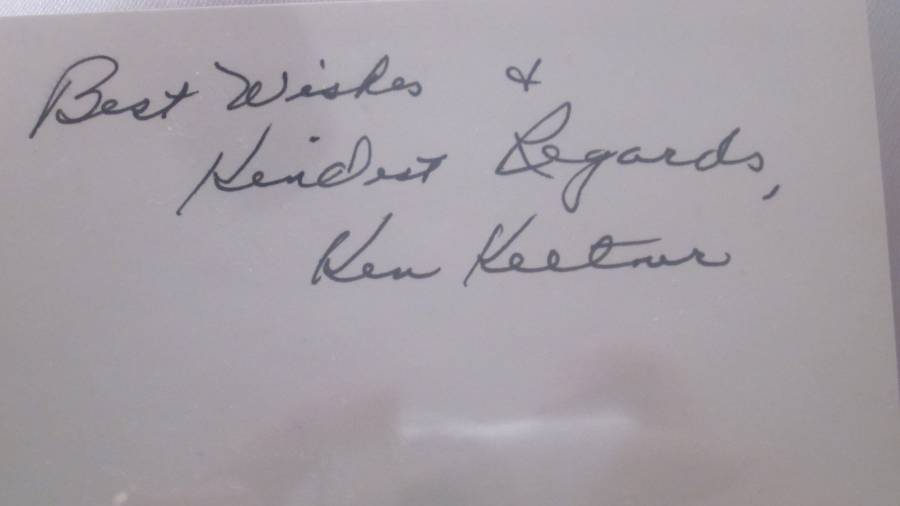 Best Wishes &
Kindest Regards,
Ken Keltner